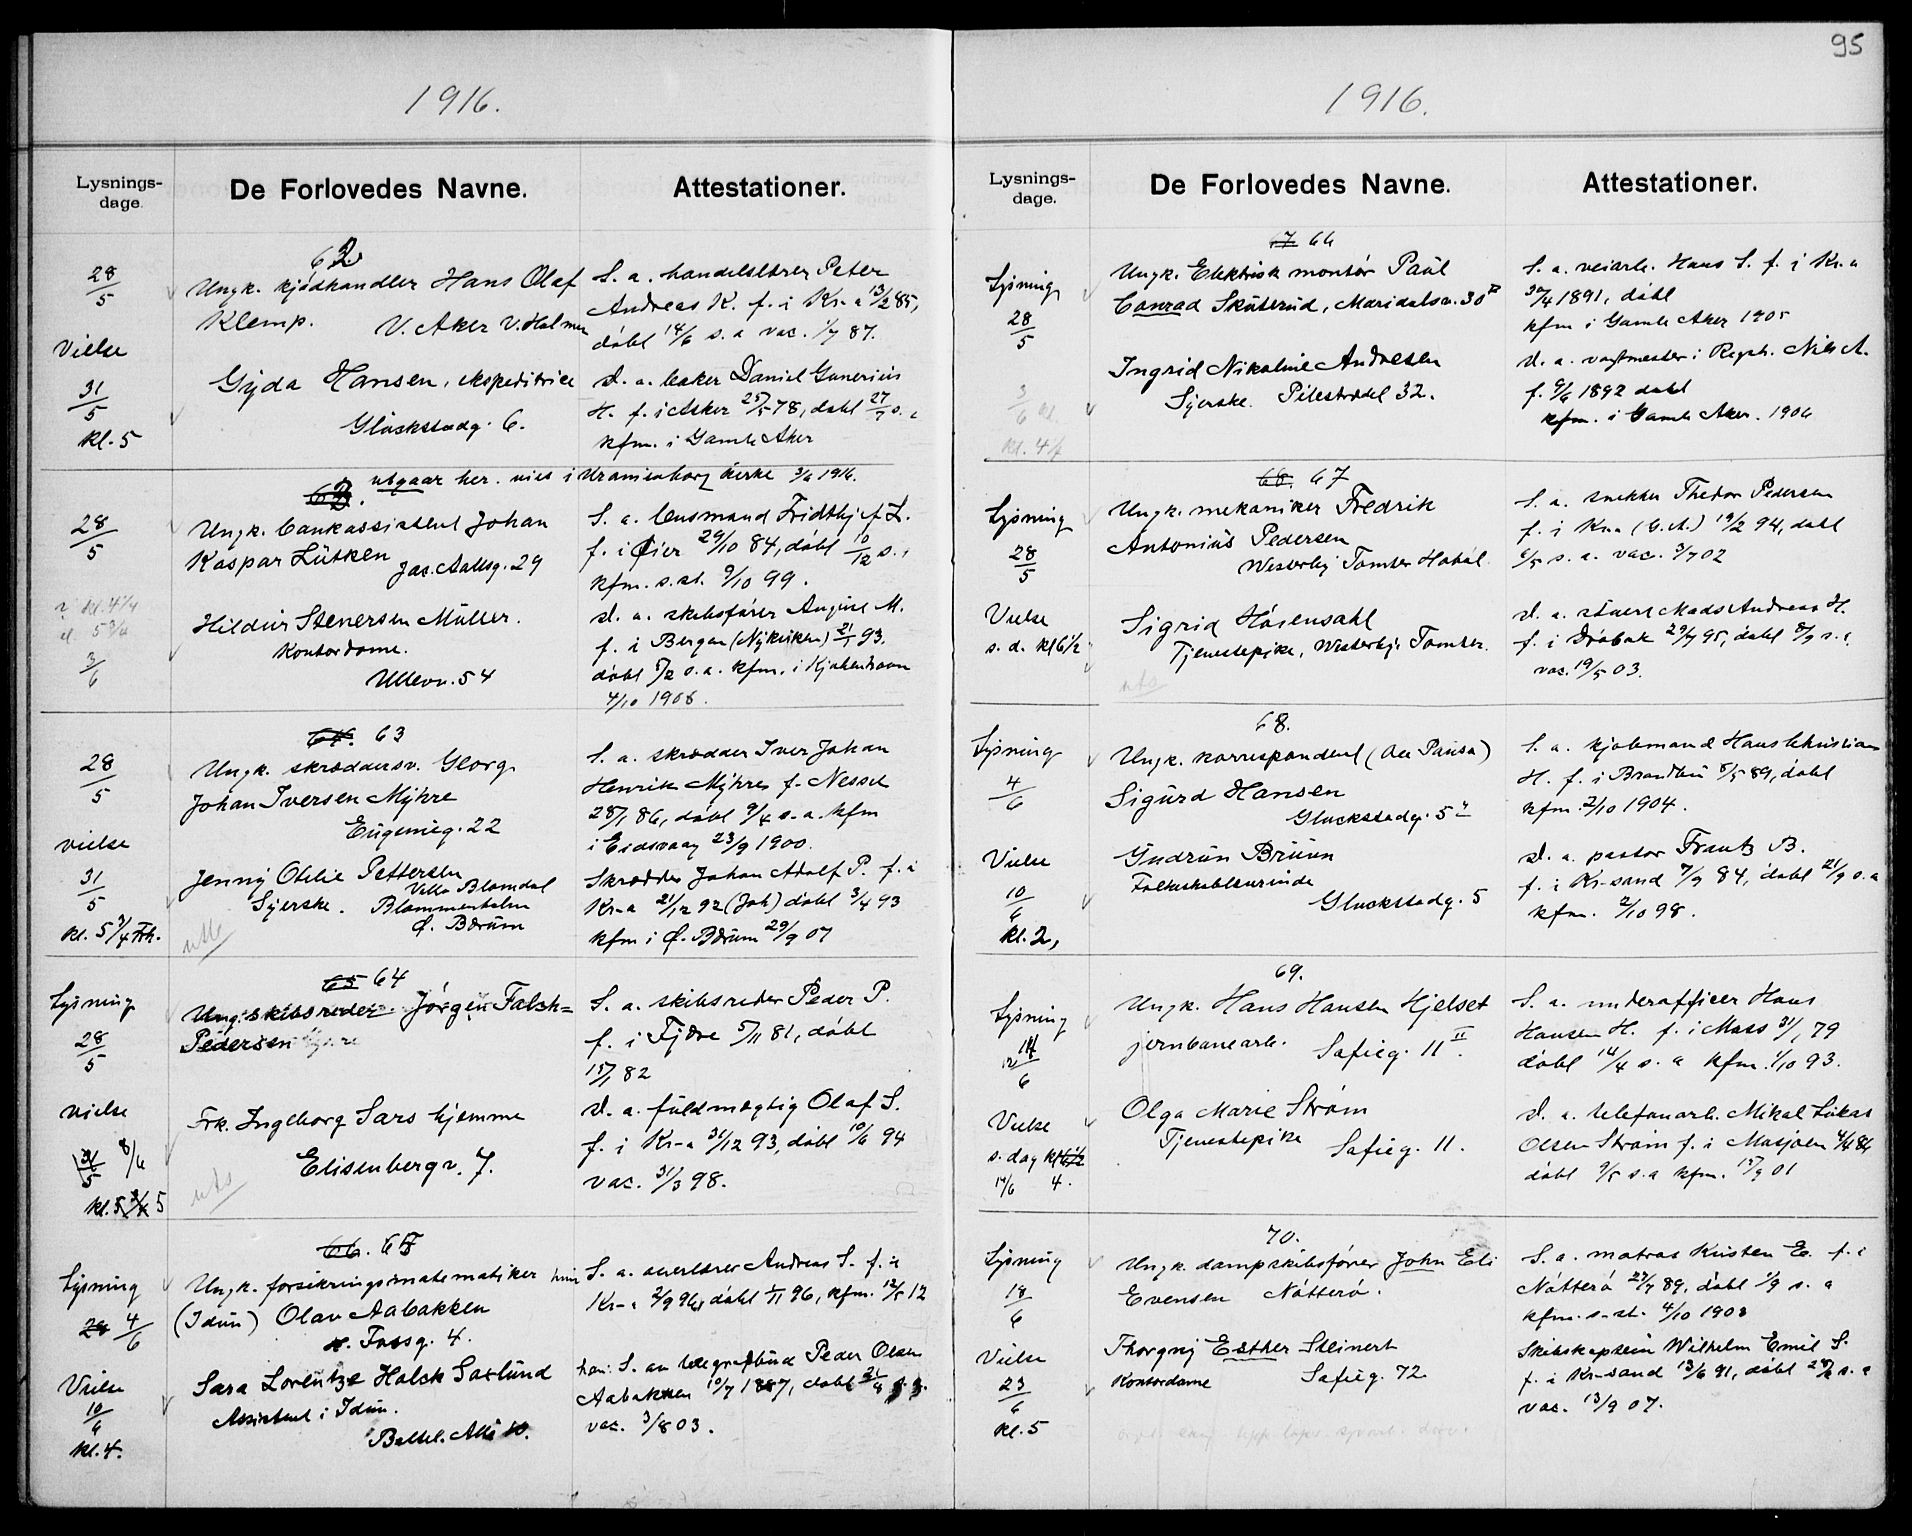 95
1916.
Lysnings-
dage.
De Forlovedes Navne.
Attestationer.
62
28/5
Ungk. kjødhandler Hans Olaf
Klemp. V. Aker V. Holmen
S. a. handelslærer Peter
Andreas K. f. i Kr-a 13/2 85,
døbt 14/6 s. a vac. 1/7 87.
Vielse
31/5
kl. 5
Gyda Hansen, ekspeditrice
Gluckstadg. 6.
d. a. baker Daniel Gunerius
H. f. i Asker 25/5 78, døbt
kfm. i Gamle Aker
utgaar her. vies i Uranienborg kirke 3/6 1916.
63.
28/5
Ungk. bankassistent Johan
Kaspar Lütken
Jac. Aallsg. 29
S. a. lensmand Fridthjof L.
f. i Øier 29/10 84, døbt 10/12 s. a
kfm. s. st. 9/10 99.
3/6
Hildur Stenersen Müller.
Kontordame.
Ullevv. 54
d. a. skibsfører August M.
f. i Bergen (Nykirken) 21/1 93.
døbt 5/2 s. a. kfm. i Kjøbenhavn
4/10 1908.
64. 63
28/5
Ungk. skræddersv. Georg
Johan Iversen Myhre
Eugenieg. 22
S. a. skrædder Iver Johan
Henrik Myhre f. Nesset
28/1 86, døbt 9/4 s. a. kfm
i Eidsvaag 23/9 1900.
vielse
31/5
kl. 5 3/4 Frk.
Jenny Otilie Pettersen
Villa Blomdal
Syerske. Blommenholm
Ø. Bærum
Skrædder Johan Adolf P. f. i
Kr-a 21/12 92 (Joh) døbt 3/4 93
kfm i Ø. Bærum 29/9 07
65 64
Lysning
28/5
Ungk. skibsreder Jørgen Falck=
Pedersen
S. a. skibsreder Peder P.
f. i Fjære 5/11 81, døbt
15/1 82
vielse
31/5 8/6
kl. 5 3/4 5
Frk. Ingeborg Sars hjemme
Elisenbergv. 7.
d. a. fuldmægtig Olaf S.
f. i Kr-a 31/12 93, døbt 10/6 94
vac. 31/3 98.
66. 65
Lysning
28 4/6
Ungk. forsikringsmatematiker
(Idun) Olav Aabakken
n. Fossg. 4.
hun S. a. overlærer Andreas S. f. i
Kr-a 2/9 96, døbt 1/11 96, kfm. 12/5 12
Vielse
10/6
kl. 4.
Sara Lorentze Holck Saxlund
Assistent i Idun.
Balteh. Alle 10.
han: S. av telegrafbud Peder Olsen
Aabakken 10/7 1887, døbt 21/9 s. a.
vac. 3/8 03.
1916.
Lysnings-
dage.
De Forlovedes Navne.
Attestationer.
67 66
Lysning
28/5
Ungk. Elektrisk montør Paul
Conrad Skuterud, Maridalsv. 30
S. a. veiarb. Hans S. f. i Kr. a
30/4 1891, døbt
kfm i Gamle Aker 1905
3/6
kl. 4 1/2
Ingrid Nikoline Andresen
Syerske. Pilestrædet 32.
d. a. vagtmester i Regsb. Nils A.
f. 9/6 1892 døbt
kfm. i Gamle Aker. 1906
68. 67
Lysning
28/5
Ungk. mekaniker Fredrik
Antonius Pedersen
Westerby Tomter Hobøl
S. a. snekker Thedor Pedersen
f. i Kr.a (G. A.) 19/2 94, døbt
6/5 s. a. vac. 3/7 02
Vielse
s. d. kl 6 1/2
Sigrid Høsensahl
Tjenestepike, Westerby Tomter.
d. a. stuert Mads Andreas H.
f. i Drøbak 29/7 95, døbt 8/9 s. a,
vac. 19/5 03.
68.
Lysning
4/6
Ungk. korrespondent
Sigurd Hansen
Gluckstadg. 5
S. a. kjøbmand Hans Christian
H. f. i Brandbu 8/5 89, døbt
kfm. 2/10 1904.
Vielse
10/6
kl. 2,
Gudrun Bruun
Folkeskolelærerinde
Gluckstadg. 5
d. a. pastor Frantz B.
f. i Kr-sand 7/9 84, døbt 21/9 s. a
kfm. 2/10 98.
69.
Lysning
11/6
Ungk. Hans Hansen Hjelset
jernbanearb. Sofieg. 11 II.
S. a. underofficer Hans
Hansen H. f. i Moss 31/1 79
døbt 14/4 s. a kfm. 1/10 93.
Vielse
s. dag kl 6 1/2
17/6 4.
Olga Marie Strøm
Tjenestepike Sofieg. 11.
d. a. telefonarb. Mikal Lukas
Olsen Strøm f. i Mosjøen 4/4 86
døbt 9/5 s. a kfm. 15/9 01
70.
Lysning
18/6
Ungk. dampskibsfører John Eli
Evensen Nøtterø.
S. a. matros Kristen E. f. i
Nøtterø 27/7 89, døbt 1/9 s. a
kfm. s. st. 4/10 1903
Vielse
23/6
kl. 5
Thorgny Esther Steinert
Kontordame Sofieg. 72
Skibskaptein Wilhelm Emil S.
f. i Kr-sand 13/6 91, døbt s. a
vac. 13/9 07.